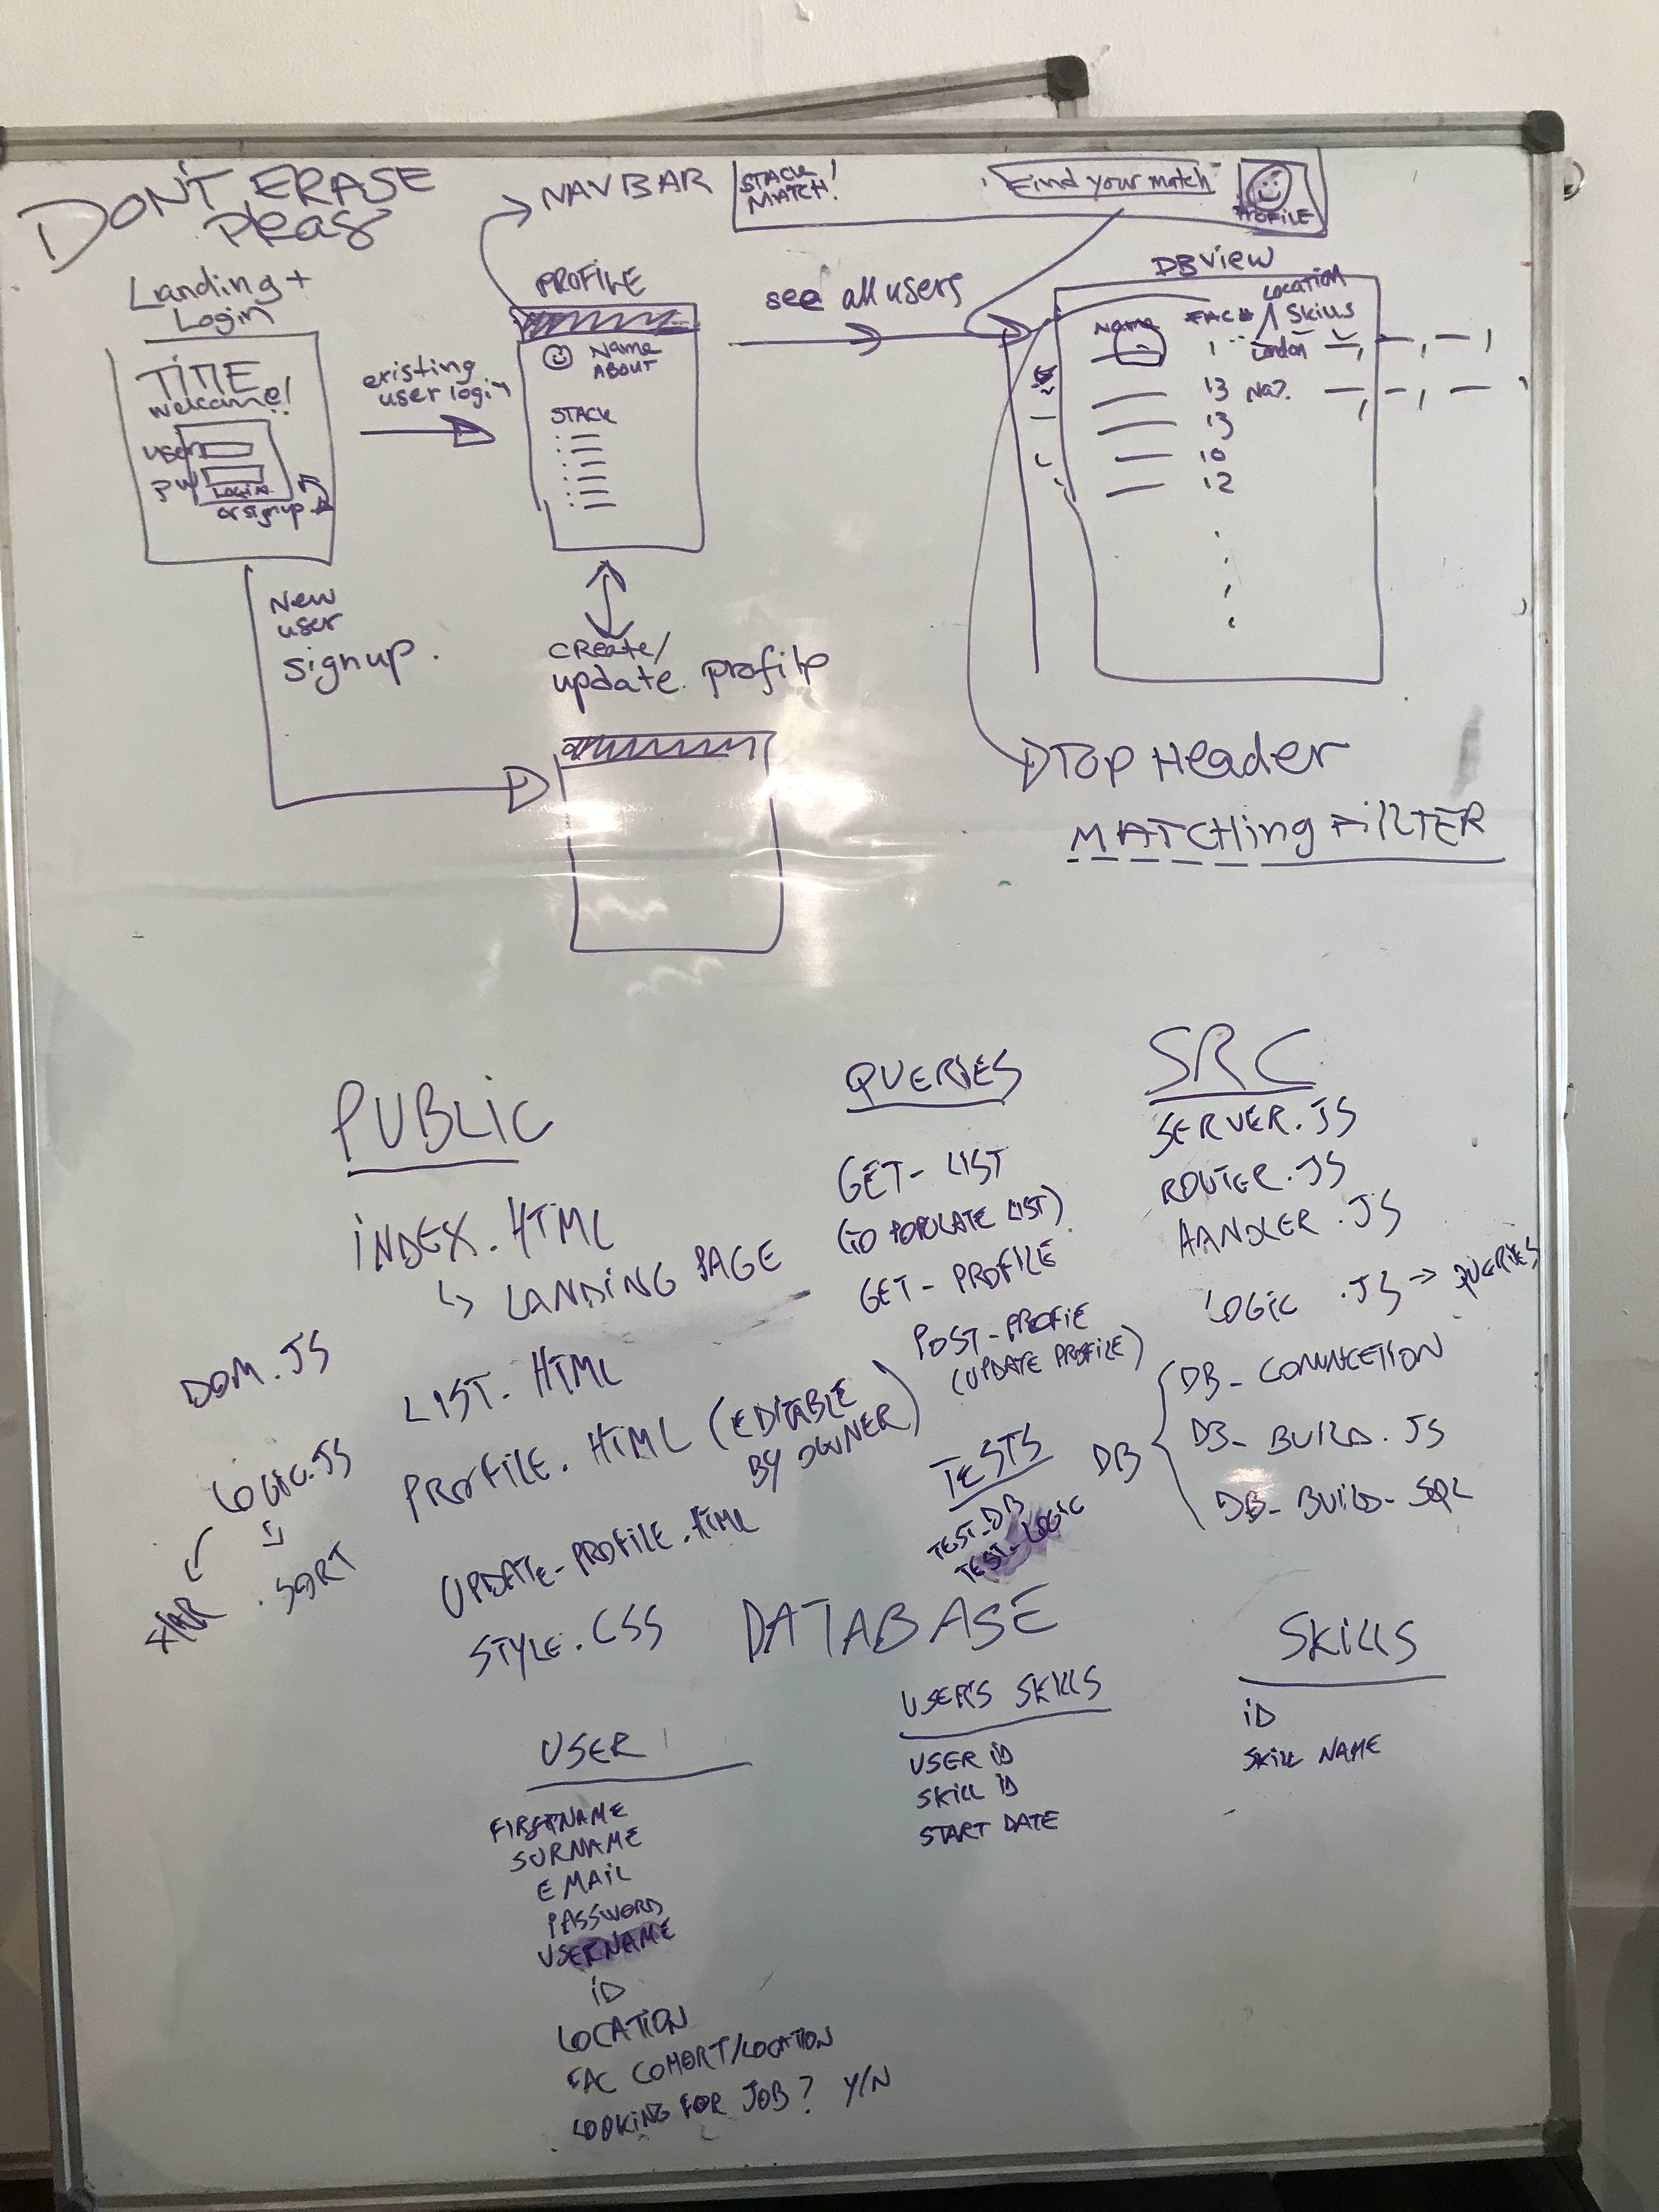 DON'T ERASE
PleaS
NAVBAR
STACK
MATCH!
Find your match
PROFILE
Landing +
Login
TITLE
welcome!
user
pw
LOGIN
or signup
existing
user login
PROFILE
Name
ABOUT
STACK
see all users
DB view
Name
FAC#
Location
Skills
1
London
13 Na?
13
10
12
New
user
signup.
create/
update profile
Top Header
MATCHing FillTER
PUBLIC
INDEX.HTML
↳ LANDING PAGE
DOM.JS
LIST.HTML
LOGIC.JS
PROFILE.HTML (EDITABLE
BY OWNER)
XHR
.SORT
UPDATE-PROFILE.HTML
STYLE.CSS
QUERIES
GET-LIST
(TO POPULATE LIST)
GET-PROFILE
POST-PROFIE
(UPDATE PROFILE)
TESTS
TEST-DB
TEST-LOGIC
SRC
SERVER.JS
ROUTER.JS
HANDLER.JS
LOGIC .JS → QUERIES
DB
DB_CONNCETION
DB_BUILD.JS
DB_BUILD_SQL
DATABASE
USER
FIRSTNAME
SURNAME
EMAIL
PASSWORD
USERNAME
ID
LOCATION
FAC COHORT/LOCATION
LOOKING FOR JOB? Y/N
USER'S SKILLS
USER ID
SKILL ID
START DATE
SKILLS
ID
SKILL NAME